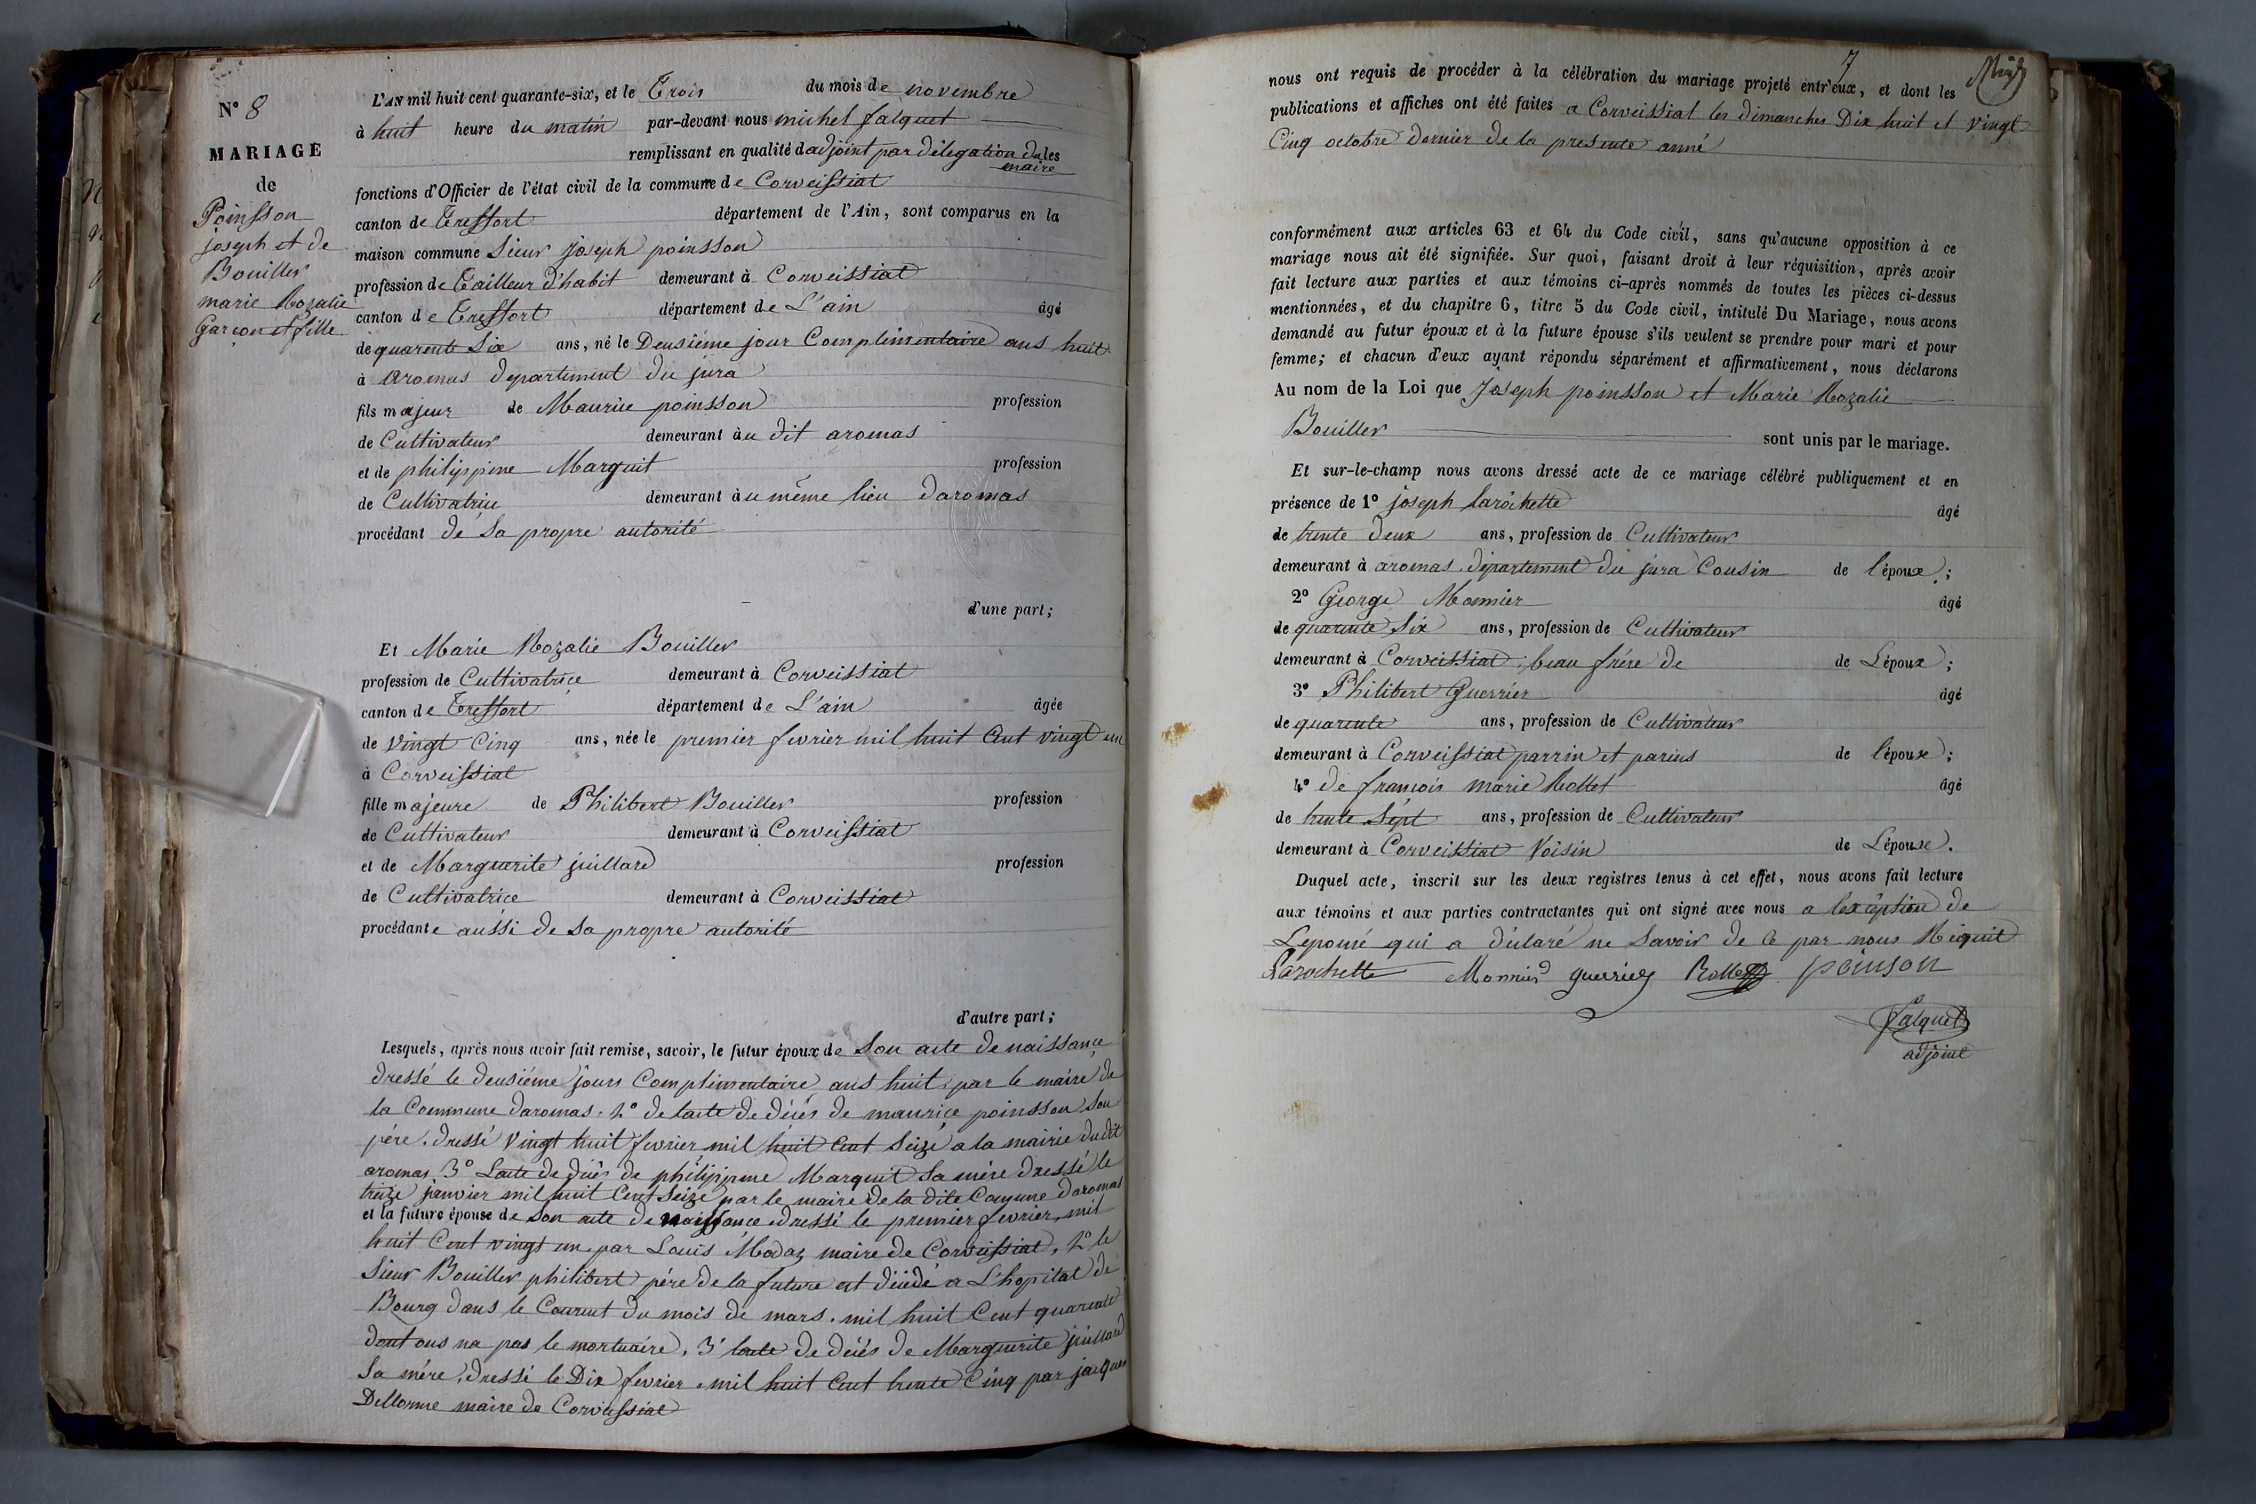 N° 8
MARIAGE
de
Poinsson
joseph et de
Bouiller
marie Rozalie
Garçon et fille
L'AN mil huit cent quarante-six, et le Trois du mois de novembre
à huit heure du matin par-devant nous michel falquet
remplissant en qualité dadjoint par délégation du les
maire
fonctions d'Officier de l'état civil de la commune de Corveissiat
canton de Treffort département de l'Ain, sont comparus en la
maison commune Sieur Joseph poinsson
profession de Tailleur d'habit demeurant à Corveissiat
canton de Treffort département de L'ain âgé
de quarente Six ans, né le Deusiéme jour Complimentaire ans huit
à aromas département du jura
fils majeur de Maurice poinsson profession
de Cultivateur demeurant àu dit aromas
et de philippine Marquit profession
de Cultivatrice demeurant àu même lieu daromas
procédant de Sa propre autorité
d'une part;
Et Marie Rozalie Bouiller
profession de Cultivatrice demeurant à Corveissiat
canton de Treffort département de L'ain âgée
de vingt Cinq ans, née le premier fevrier mil huit Cent vingt un
à Corveissiat
fille majeure de Philibert Bouiller profession
de Cultivateur demeurant à Corveissiat
et de Marguerite juillard profession
de Cultivatrice demeurant à Corveissiat
procédante aussi de Sa propre autorité
d'autre part;
Lesquels, après nous avoir fait remise, savoir, le futur époux de Son acte de naissance
dressé le deusiéme jours Complimentaire ans huit par le maire de
la Commune daromas. 2° de lacte de décés de maurice poinsson Son
pére. dressé vingt huit fevrier mil huit Cent Seize a la mairie dudit
aromas. 3° Lacte de décés de philippine Marquit Sa mére dressé le
treize janvier mil huit Cent Seize par le maire de la dite Comune daromas
et la future épouse de Son acte de naissance dressé le premier fevrier mil
huit Cent vingt un par Louis Modaz maire de Corveissiat, 2° le
Sieur Bouiller philibert pére de la future est décédé a L'hopital de
Bourg dans le Courent du mois de mars. mil huit Cent quarente
dont ons na pas le mortuaire. 3° lacte de décés de Marguerite juillard
Sa mére. dressé le Dix fevrier mil huit Cent trente Cinq par jacques
Dellorme maire de Corveissiat
7
nous ont requis de procéder à la célébration du mariage projeté entr'eux, et dont les
publications et affiches ont été faites a Corveissiat les dimanches Dix huit et vingt
Cinq octobre dernier de la presente anné
conformément aux articles 63 et 64 du Code civil, sans qu'aucune opposition à ce
mariage nous ait été signifiée. Sur quoi, faisant droit à leur réquisition, après avoir
fait lecture aux parties et aux témoins ci-après nommés de toutes les pièces ci-dessus
mentionnées, et du chapitre 6, titre 5 du Code civil, intitulé Du Mariage, nous avons
demandé au futur époux et à la future épouse s'ils veulent se prendre pour mari et pour
femme; et chacun d'eux ayant répondu séparément et affirmativement, nous déclarons
Au nom de la Loi que Joseph poinsson et Marie Rozalie
Bouiller sont unis par le mariage.
Et sur-le-champ nous avons dressé acte de ce mariage célébré publiquement et en
présence de 1° joseph Larochette âgé
de trente deux ans, profession de Cultivateur
demeurant à aromas département du jura Cousin de l'époux;
2° George Monnier âgé
de quarente Six ans, profession de Cultivateur
demeurant à Corveissiat beau frére de de L'époux;
3° Philibert Guerrier âgé
de quarente ans, profession de Cultivateur
demeurant à Corveissiat parrin et parens de l'épouse;
4° de françois marie Rollet âgé
de trente Sept ans, profession de Cultivateur
demeurant à Corveissiat Voisin de L'épouse.
Duquel acte, inscrit sur les deux registres tenus à cet effet, nous avons fait lecture
aux témoins et aux parties contractantes qui ont signé avec nous a lexception de
Lepouse qui a déclaré ne Savoir de ce par nous Réquit
Larochette Monnier guerrier Rollet poinson
falquet
adjoint